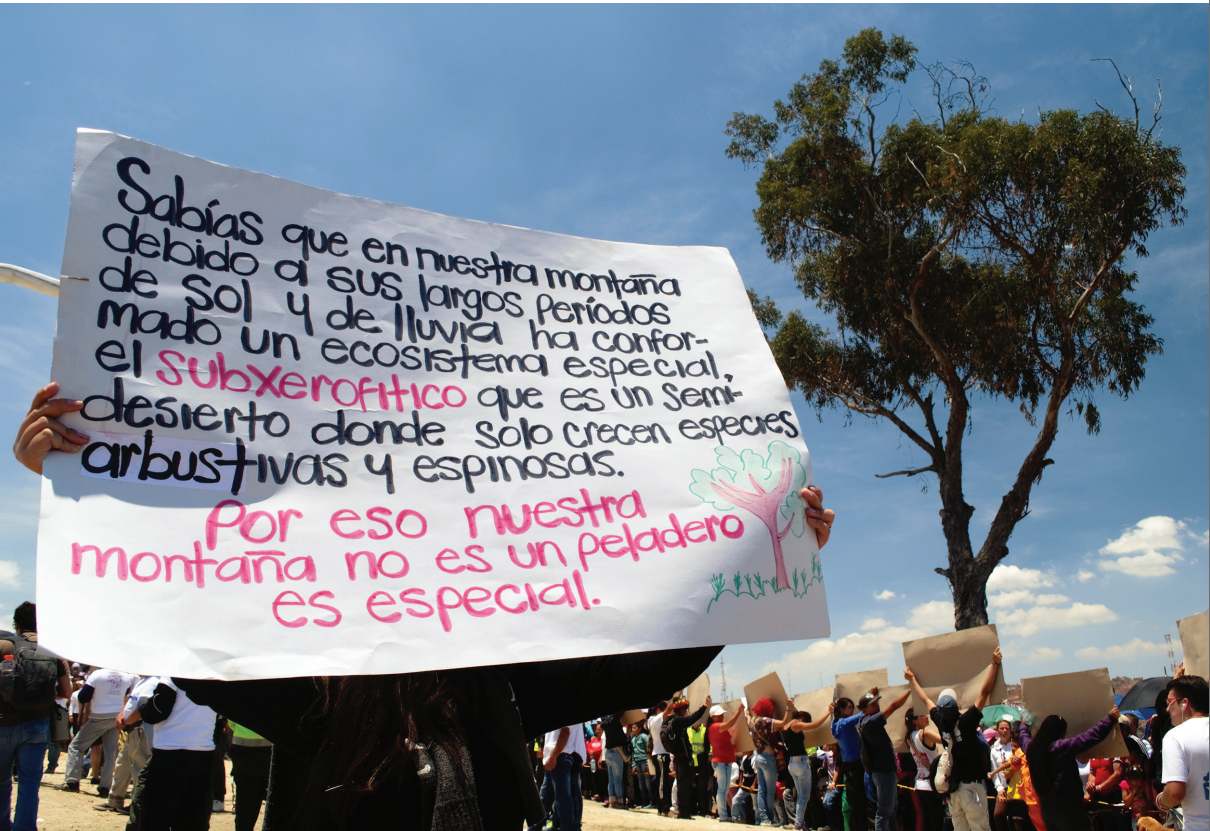 Sabías que en nuestra montaña
debido a sus largos períodos
de sol y de lluvia ha confor-
mado un ecosistema especial,
el subxerofitico que es un semi-
desierto donde solo crecen especies
arbustivas y espinosas.
Por eso nuestra
montaña no es un peladero
es especial.